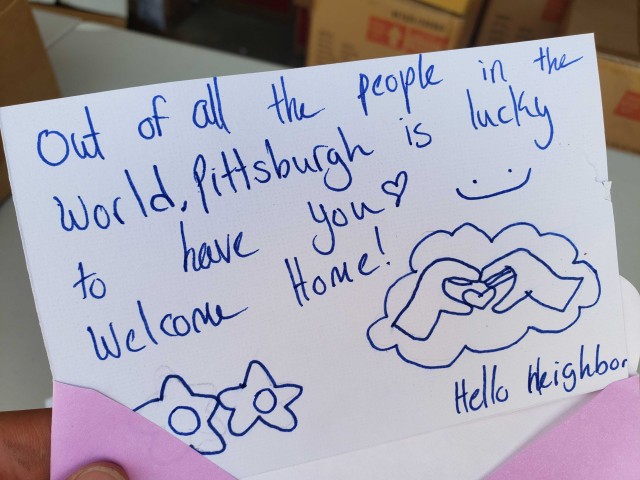 Out of all the people in the
World, Pittsburgh is lucky
to have you♡
Welcome Home!
Hello Neighbor